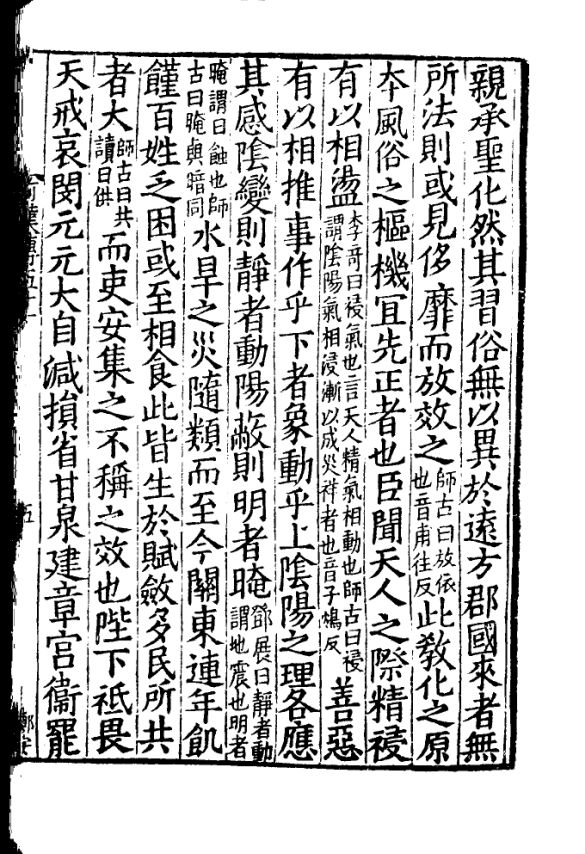 親承聖化然其習俗無以異於遠方郡國來者無
所法則或見侈靡而放效之師古曰放依也音甫往反此敎化之原
夲風俗之樞機冝先正者也臣聞天人之際精祲
有以相盪李竒曰祲氣也言天人精氣相動也師古曰祲謂陰陽氣相浸漸以成災祥者也音子鴆反善惡
有以相推事作乎下者象動乎上隂陽之理各應
其感隂變則靜者動陽蔽則明者晻鄧展曰靜者動謂地震也明者
晻謂日蝕也師古曰晻與暗同水旱之災隨類而至今關東連年飢
饉百姓乏困或至相食此皆生於賦斂多民所共
者大師古曰共讀曰供而吏安集之不稱之效也陛下祗畏
天戒哀閔元元大自減損省甘泉建章宮衞罷
五